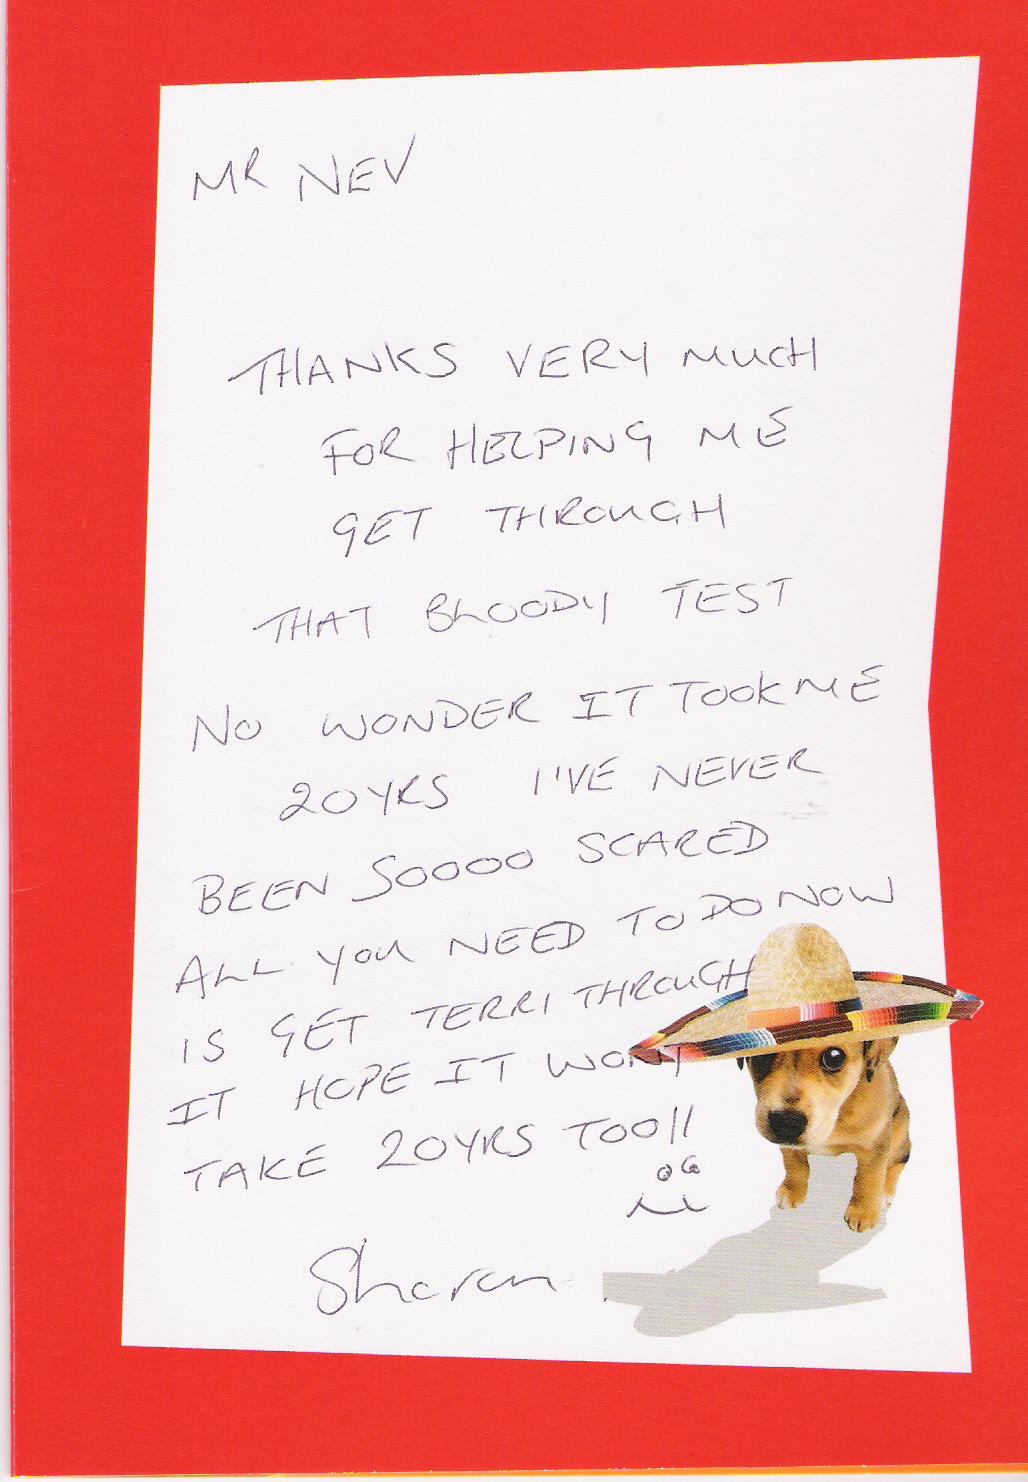 MR NEV
THANKS VERY MUCH
FOR HELPING ME
GET THROUGH
THAT BLOODY TEST
NO WONDER IT TOOK ME
20YRS I'VE NEVER
BEEN SOOOO SCARED
ALL YOU NEED TO DO NOW
IS GET TERRI THROUGH
IT HOPE IT WONT
TAKE 20YRS TOO!!
Sharon